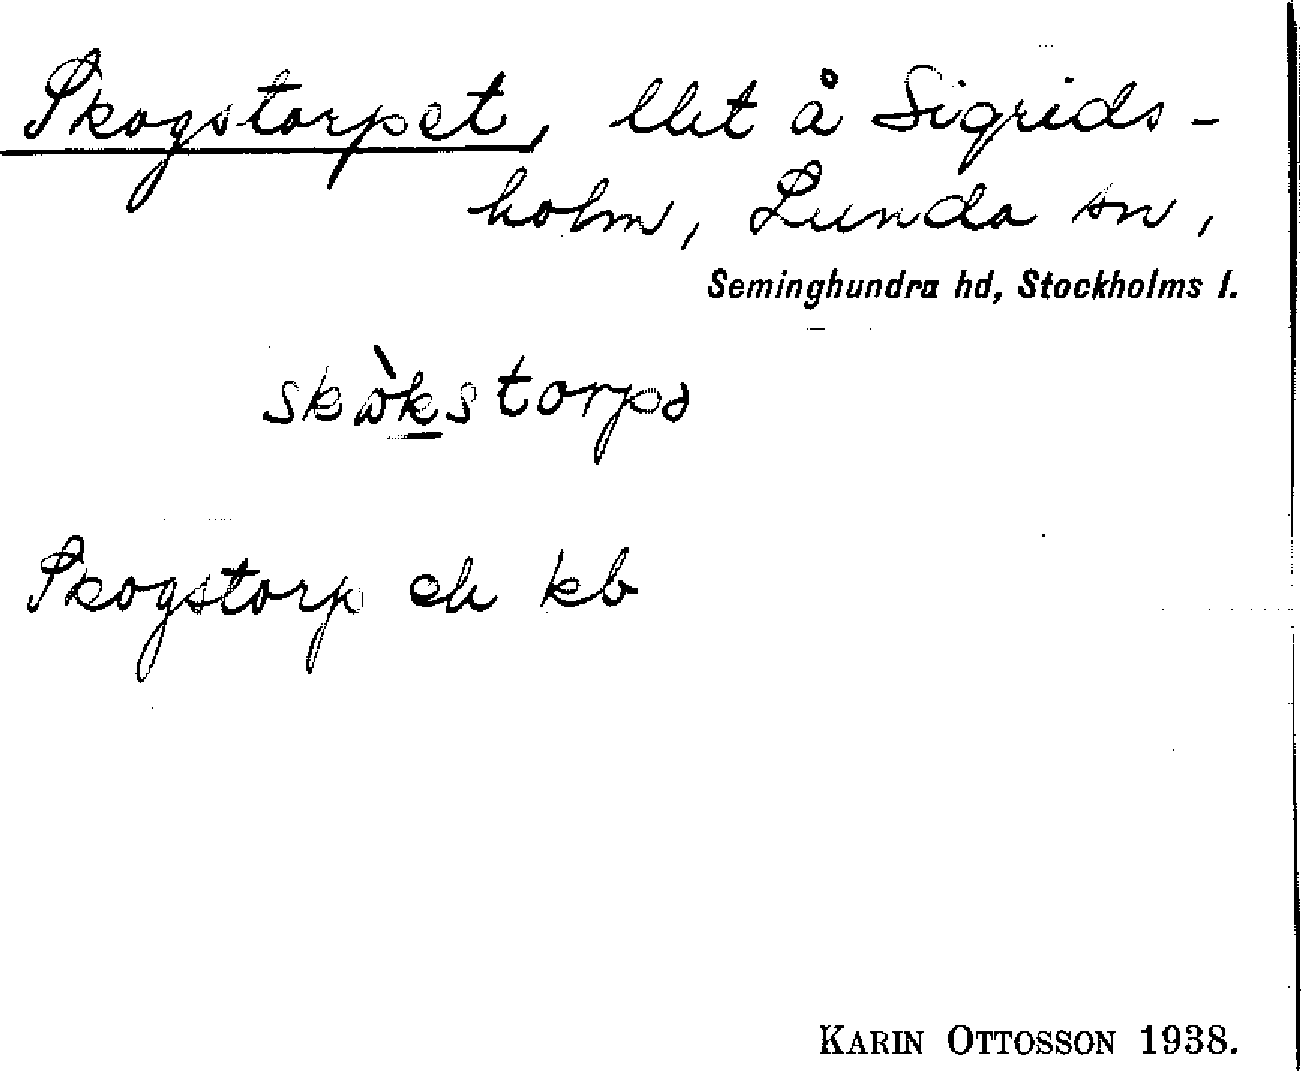 Skogstorpet, llet å Sigrids-
holm, Lunda sn,
Seminghundra hd, Stockholms l.
skòkstorpə
Skogstorp ek kb
KARIN OTTOSSON 1938.